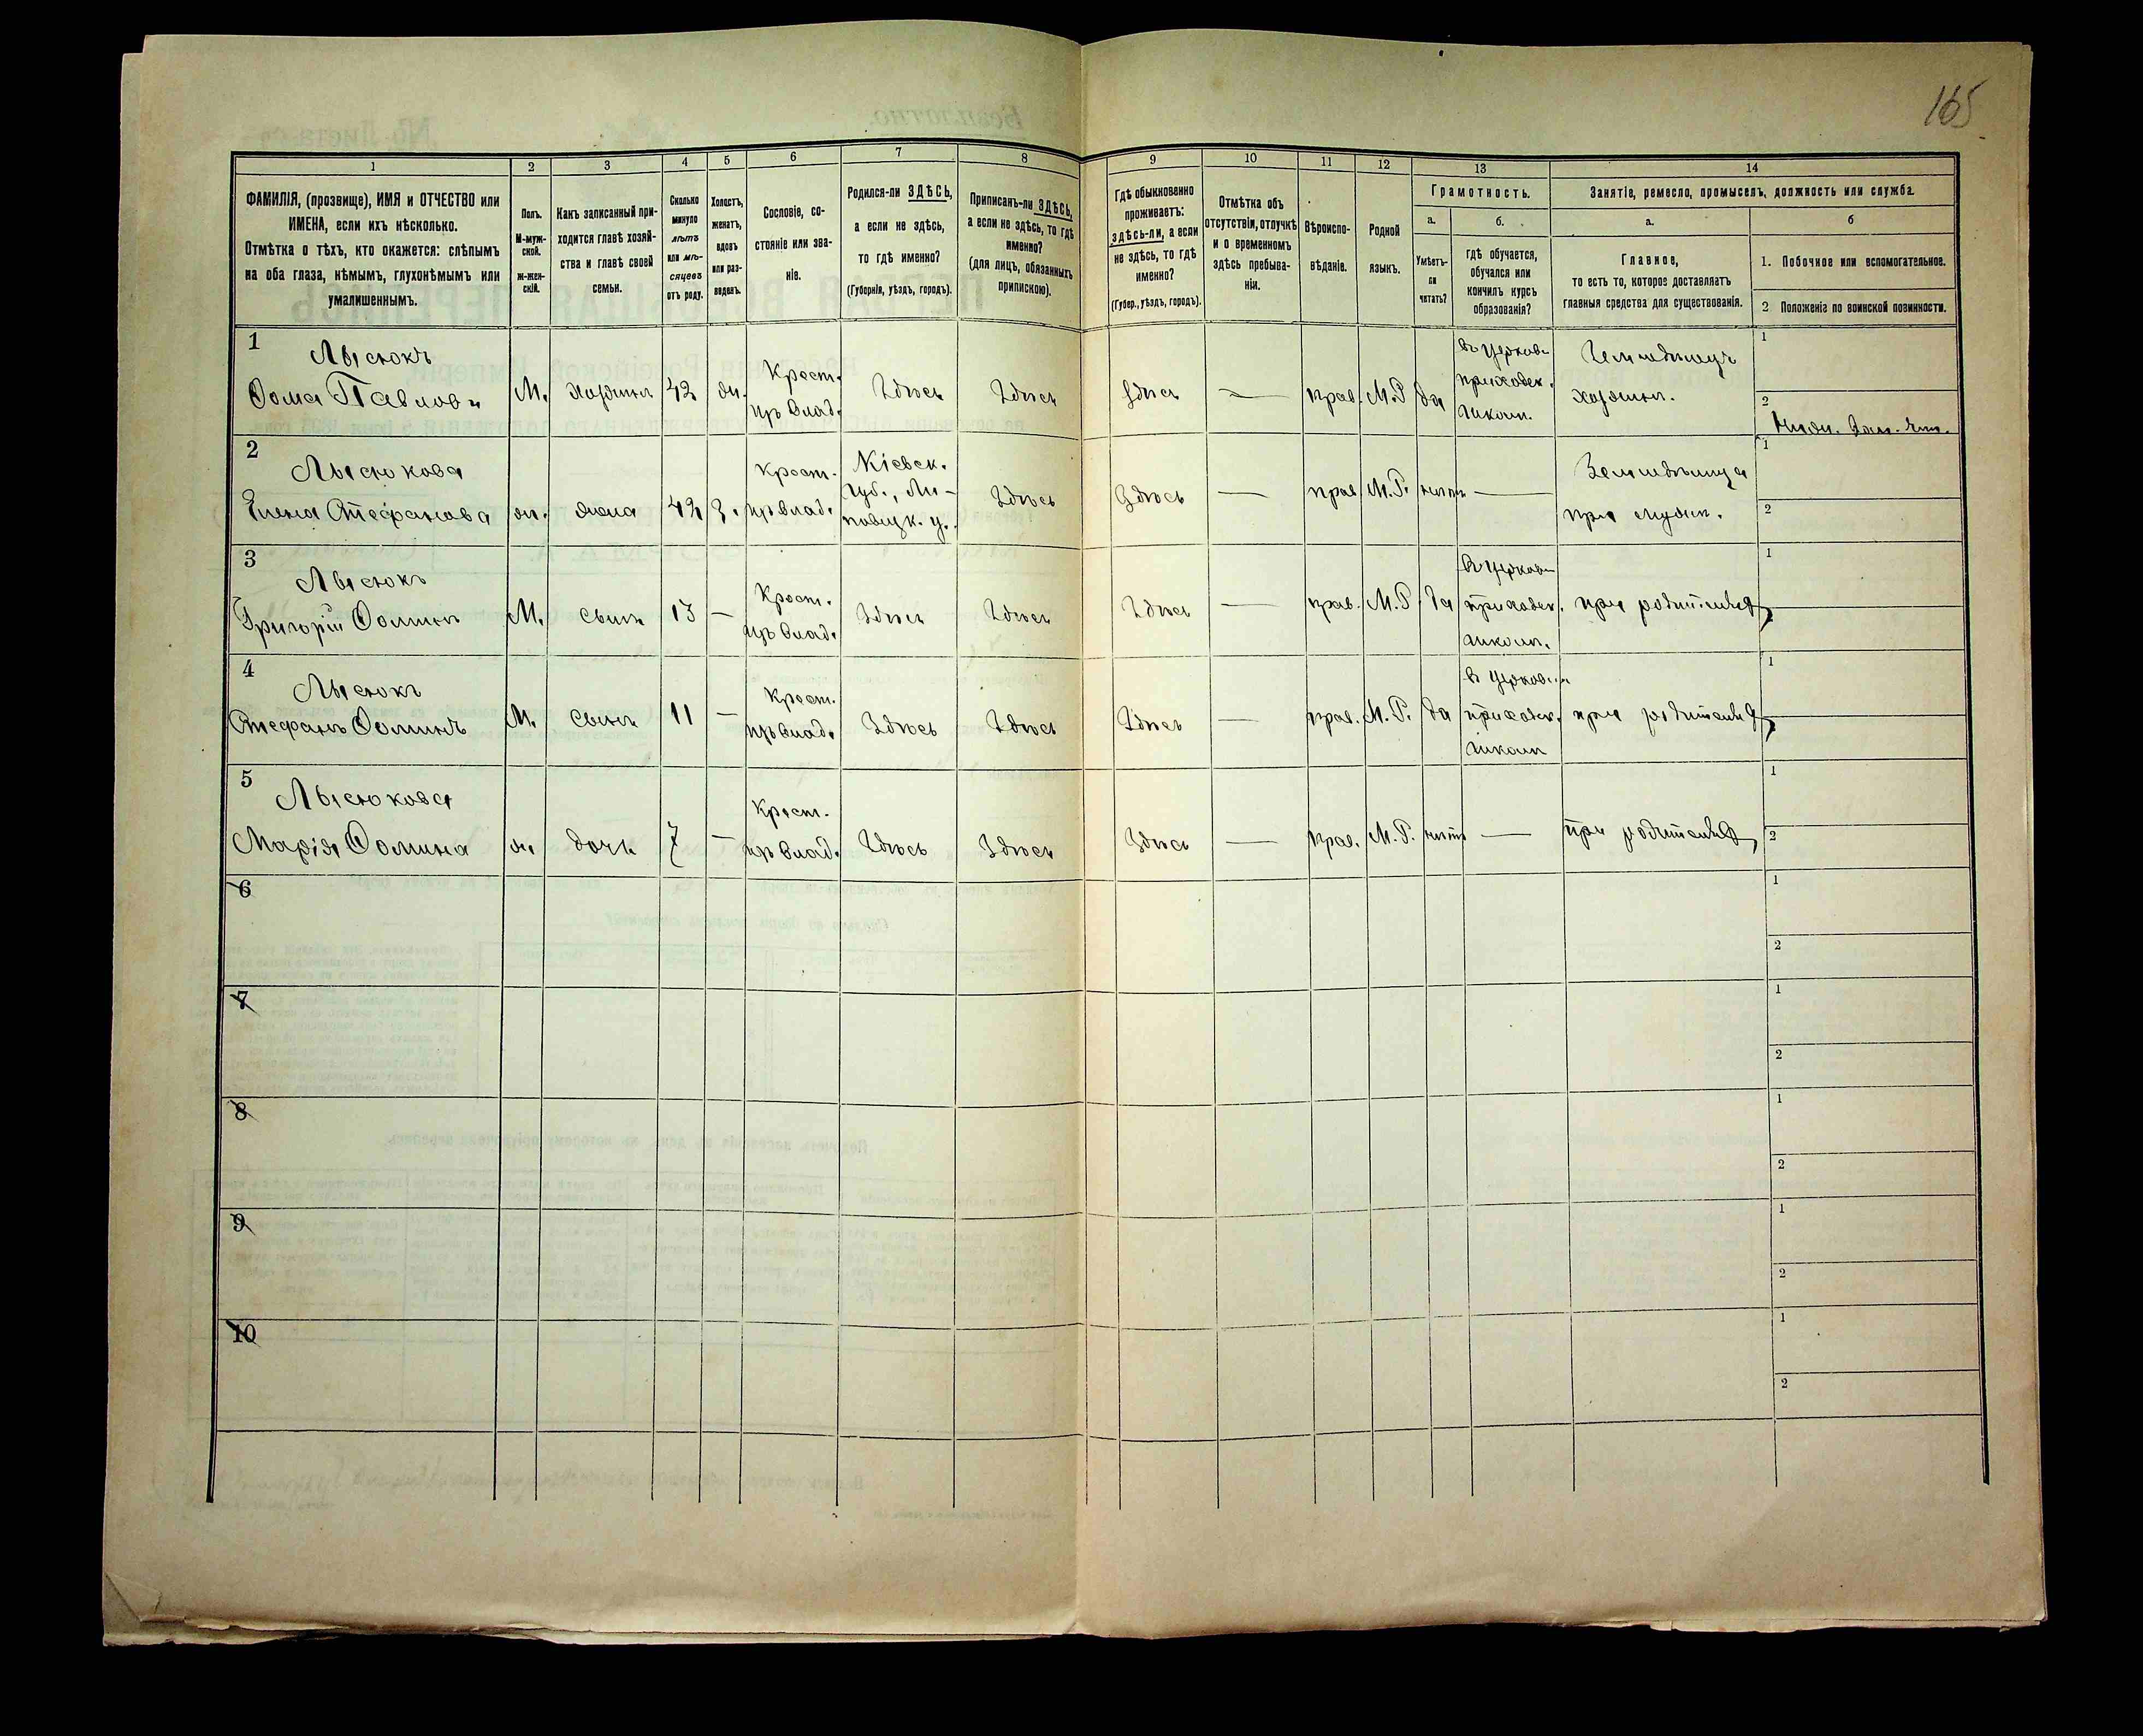 165
1 2 3 4 5 6 7 8 9 10 11 12 13 14
ФАМИЛІЯ, (прозвище), ИМЯ и ОТЧЕСТВО или
ИМЕНА, если ихъ нѣсколько.
Отмѣтка о тѣхъ, кто окажется: слѣпымъ
на оба глаза, нѣмымъ, глухонѣмымъ или
умалишеннымъ.
Полъ.
М-муж-
ской.
ж-жен-
скій.
Какъ записанный при-
ходится главѣ хозяй-
ства и главѣ своей
семьи.
Сколько
минуло
лѣтъ
или мѣ-
сяцевъ
отъ роду.
Холостъ,
женатъ,
вдовъ
или раз-
веденъ.
Сословіе, со-
стояніе или зва-
ніе.
Родился-ли ЗДѢСЬ,
а если не здѣсь,
то гдѣ именно?
(Губернія, уѣздъ, городъ).
Приписанъ-ли ЗДѢСЬ,
а если не здѣсь, то гдѣ
именно?
(для лицъ, обязанныхъ
припискою).
Гдѣ обыкновенно
проживаетъ:
здѣсь-ли, а если
не здѣсь, то гдѣ
именно?
(Губер., уѣздъ, городъ).
Отмѣтка объ
отсутствіи, отлучкѣ
и о временномъ
здѣсь пребыва-
ніи.
Вѣроиспо-
вѣданіе.
Родной
языкъ.
Грамотность.
а.
Умѣетъ-
ли
читать?
б.
гдѣ обучается,
обучался или
кончилъ курсъ
образованія?
Занятіе, ремесло, промыселъ, должность или служба.
а.
Главное,
то есть то, которое доставляетъ
главныя средства для существованія.
б
1. Побочное или вспомогательное.
2 Положеніе по воинской повинности.
1
Лысюкъ
Ѳома Павловъ
М.
хозяинъ
42
ж.
Крест.
изъ влад.
Здѣсь
Здѣсь
Здѣсь
—
прав.
М.Р
да
въ церков
приходск.
школѣ.
Земледѣлецъ
хозяинъ.
1
2
2
Лысюкова
Елена Стефанова
ж.
жена
42
з.
Крест.
изъ влад.
Кіевск.
губ., Ли-
повецк. у.
Здѣсь
Здѣсь
—
прав
М.Р.
нѣтъ
—
Земледѣлица
при мужѣ.
1
2
3
Лысюкъ
Григорій Ѳоминъ
М.
сынъ
13
—
Крест.
изъ влад.
Здѣсь
Здѣсь
Здѣсь
—
прав.
М.Р
да
въ церков
приходск.
школѣ.
при родителяхъ
1
4
Лысюкъ
Стефанъ Ѳоминъ
М.
сынъ
11
—
Крест.
изъ влад.
Здѣсь
Здѣсь
Здѣсь
—
прав.
М.Р.
да
въ церков
приходск.
школѣ
при родителяхъ
1
5
Лысюкова
Марія Ѳомина
ж
дочь
7
—
Крест.
изъ влад.
Здѣсь
Здѣсь
Здѣсь
—
прав.
М.Р.
нѣтъ
—
при родителяхъ
1
2
6
1
2
7
1
2
8
1
2
9
1
2
10
1
2